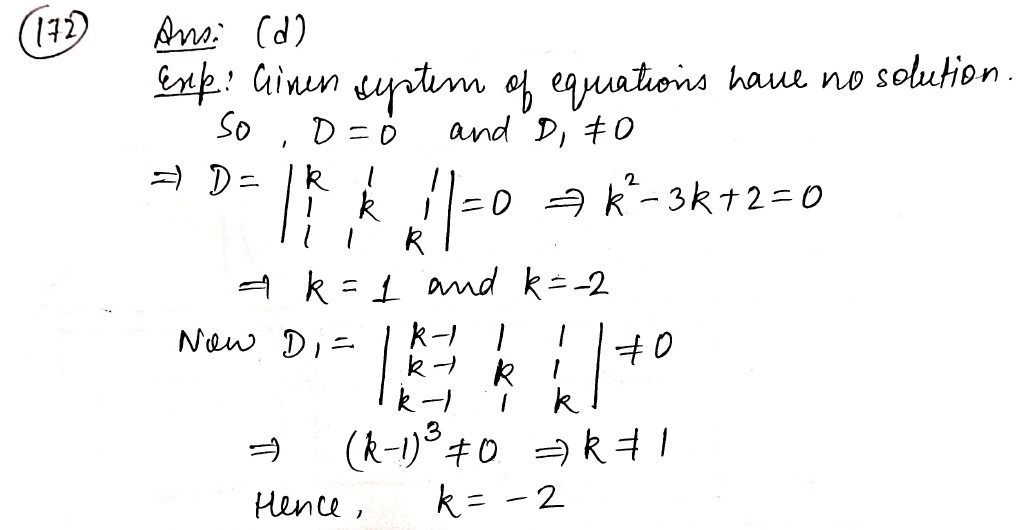 (172) Ans: (d)
Exp: Given system of equations have no solution.
So, D = 0 and D₁ ≠ 0
⇒ D = |k 1 1; 1 k 1; 1 1 k| = 0 ⇒ k² - 3k + 2 = 0
⇒ k = 1 and k = -2
Now D₁ = |k-1 1 1; k-1 k 1; k-1 1 k| ≠ 0
⇒ (k-1)³ ≠ 0 ⇒ k ≠ 1
Hence, k = -2